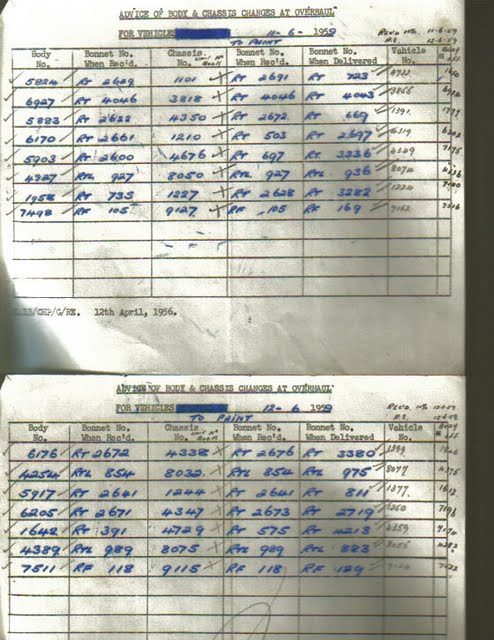 ADVICE OF BODY & CHASSIS CHANGES AT OVERHAUL
FOR VEHICLES 11-6-1959
TO PAINT
Body No. Bonnet No. When Rec'd. Chassis No. Bonnet No. When Rec'd. Bonnet No. When Delivered Vehicle No.
5824 RT 2629 1101 RT 2691 RT 723
6927 RT 4046 3818 RT 4046 RT 4043
5883 RT 2622 4350 RT 2672 RT 669
6170 RT 2661 1210 RT 503 RT 2697
5903 RT 2600 4676 RT 697 RT 3336
4327 RTL 927 8050 RTL 927 RTL 936
1958 RT 735 1227 RT 2628 RT 3282
7498 RF 105 9127 RF 105 RF 169
12th April, 1956.
ADVICE OF BODY & CHASSIS CHANGES AT OVERHAUL
FOR VEHICLES 12-6 1959
TO PAINT
Body No. Bonnet No. When Rec'd. Chassis No. Bonnet No. When Rec'd. Bonnet No. When Delivered Vehicle No.
6176 RT 2672 4338 RT 2676 RT 3380 1399
4254 RTL 854 8032 RTL 854 RTL 975 8077
5917 RT 2641 1244 RT 2641 RT 811 1377
6205 RT 2671 4347 RT 2673 RT 2719
1642 RT 391 4729 RT 575 RT 4213
4389 RTL 989 8075 RTL 989 RTL 883
7511 RF 118 9115 RF 118 RF 129